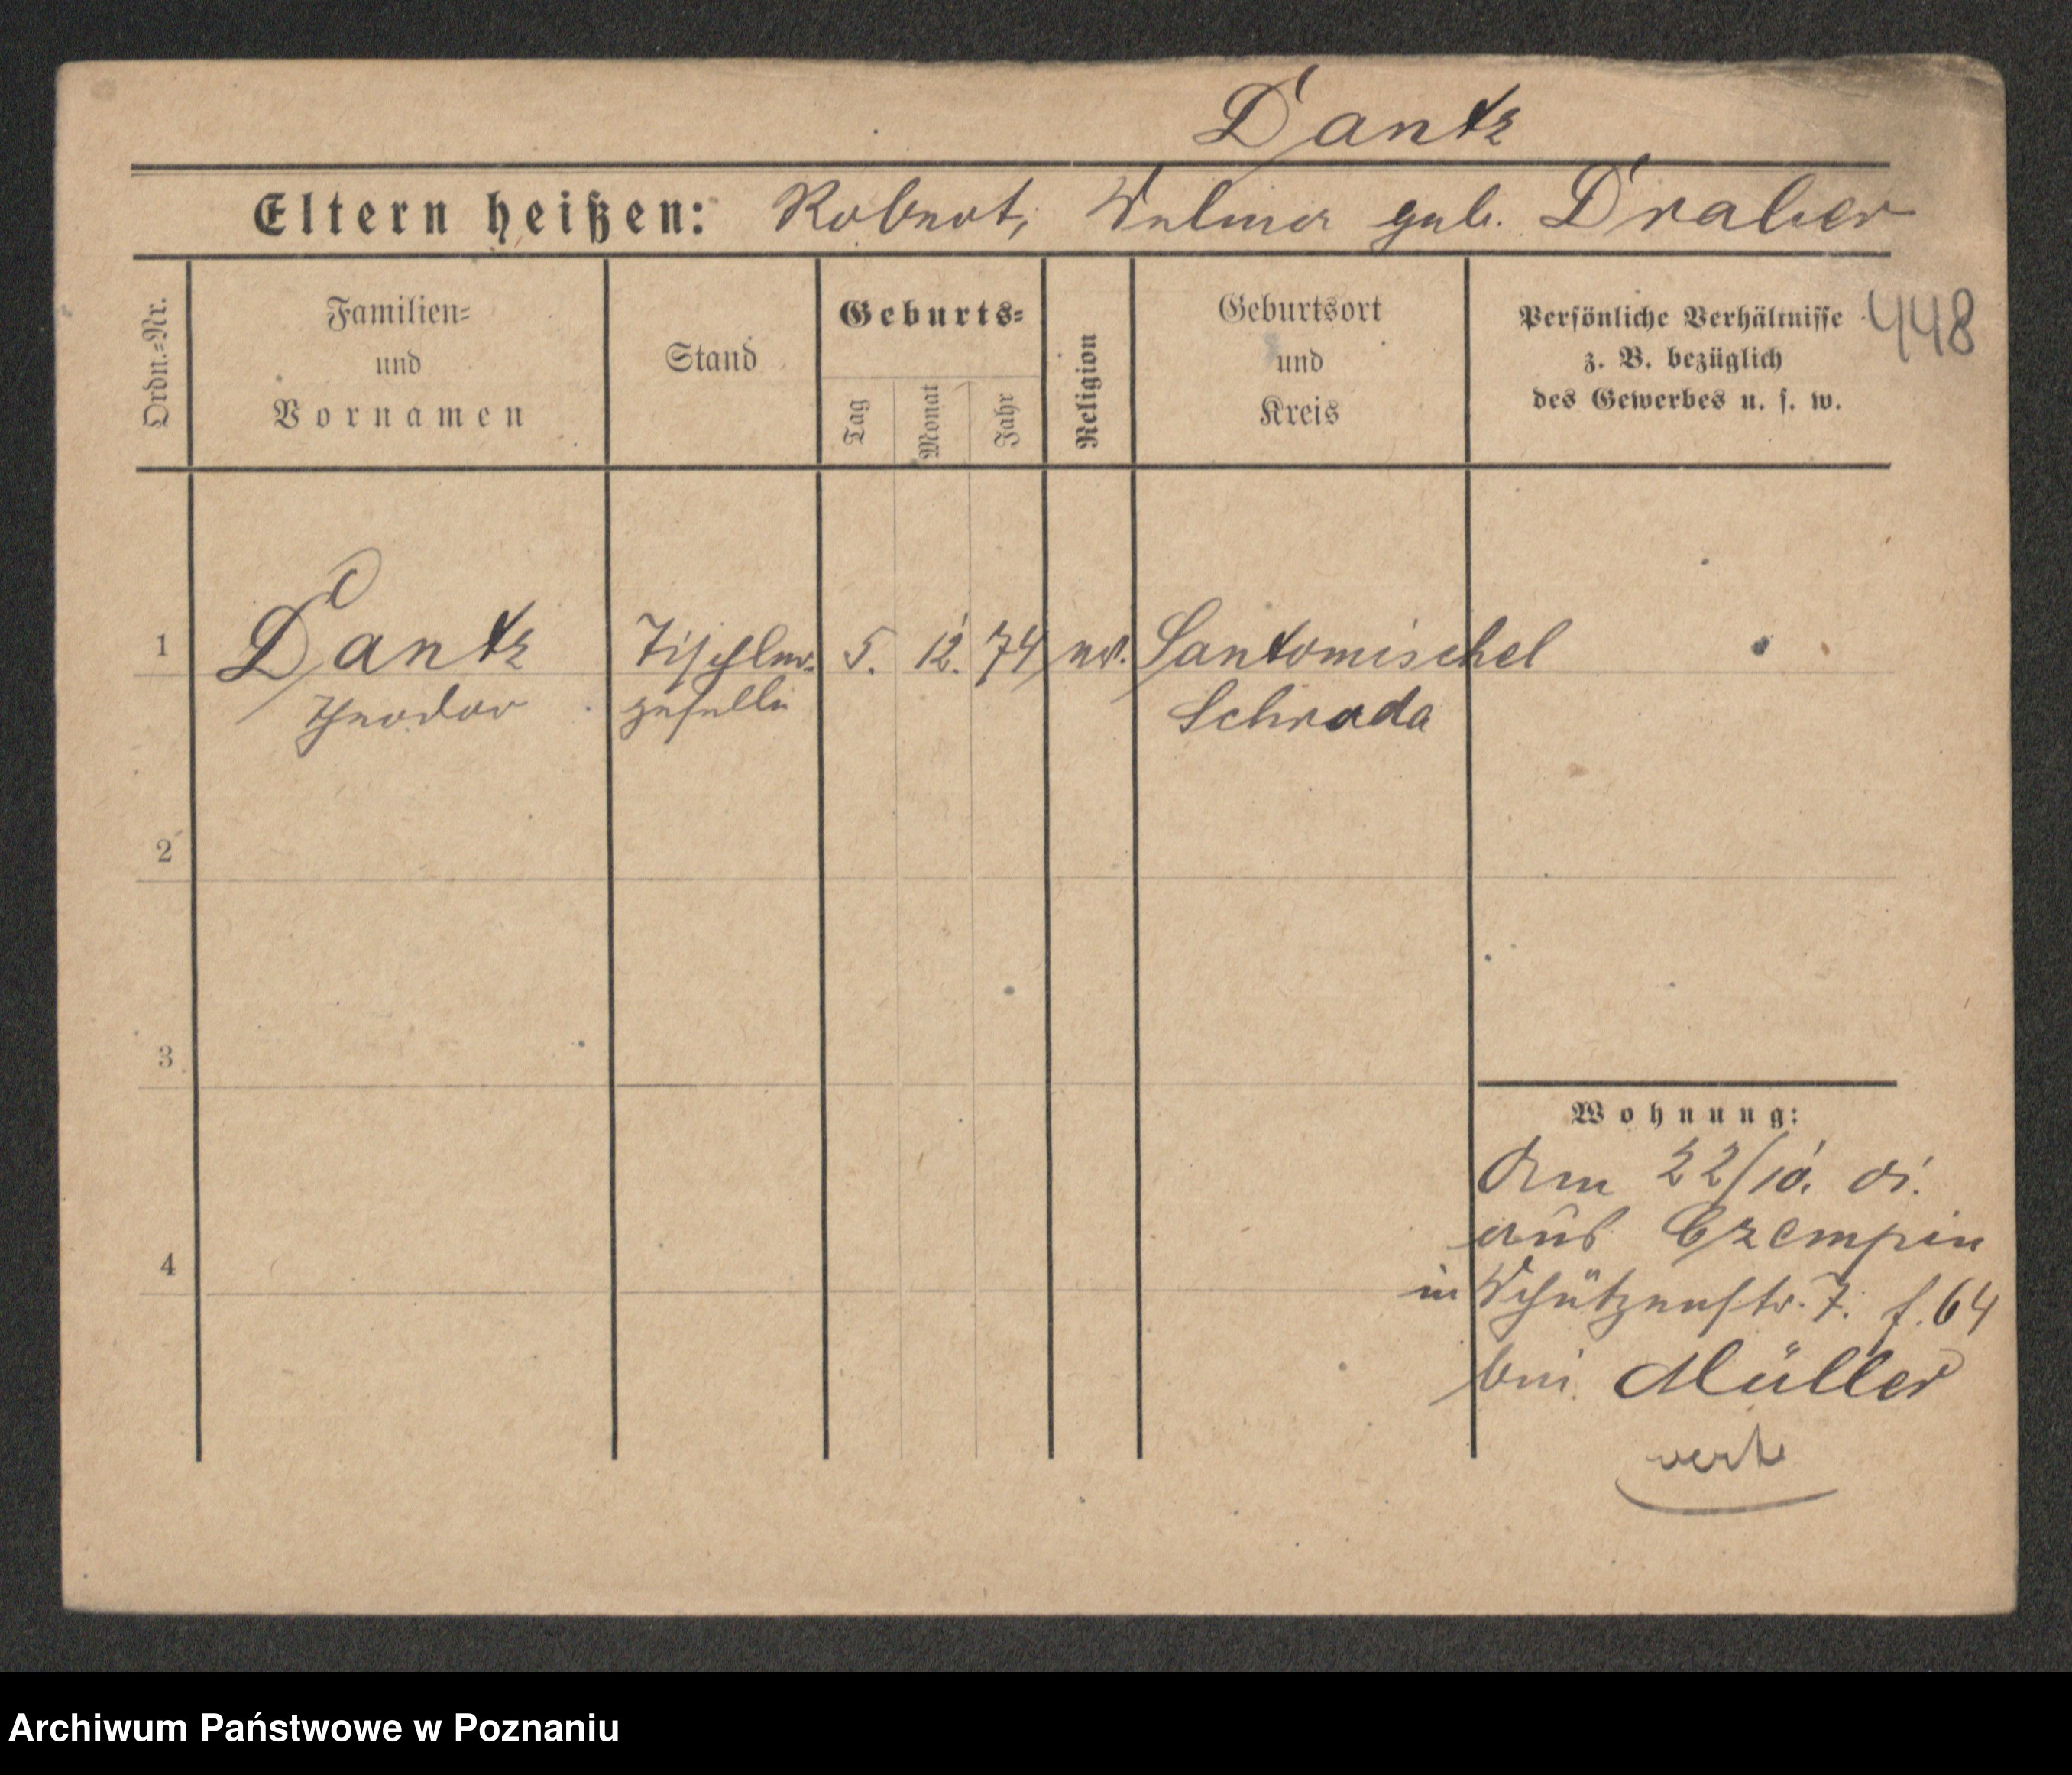 Dantz
Eltern heißen: Robert, geb. Draber
Ordn.=Nr.
Familien=
und
Vornamen
Stand
Geburts=
Tag
Monat
Jahr
Religion
Geburtsort
und
Kreis
Persönliche Verhältnisse
z. B. bezüglich
des Gewerbes u. s. w.
448
1 Dantz Tischler= 5. 12. 74 ev. Santomischel
Theodor geselle Schroda
2
3
4
Wohnung:
Am 22/10.
aus Czempin
in Schützenstr. 7. f. 64
bei Müller
verte
Archiwum Państwowe w Poznaniu